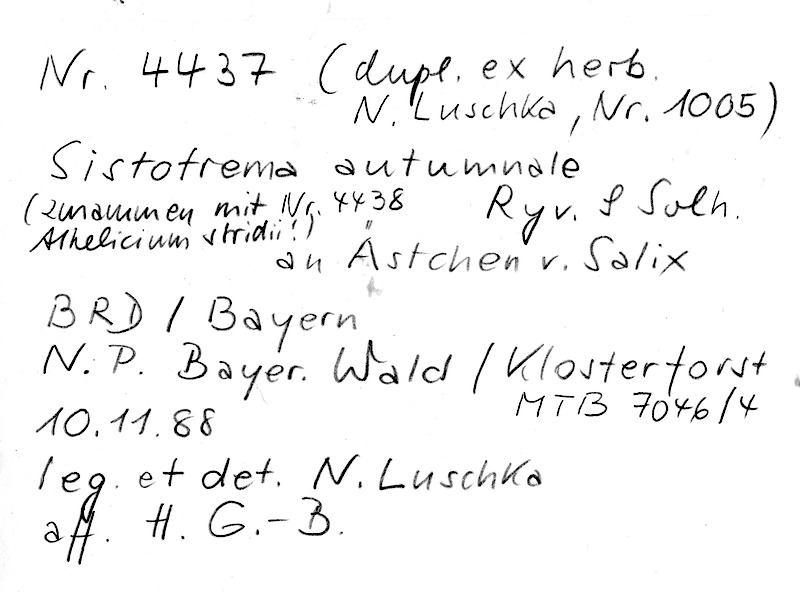 Nr. 4437 (dupl. ex herb.
N. Luschka, Nr. 1005)
Sistotrema autumnale
(zusammen mit Nr. 4438 Ryv. & Solh.
Athelicium stridii!)
an Ästchen v. Salix
BRD / Bayern
N. P. Bayer. Wald / Klosterforst
MTB 7046/4
10.11.88
leg. et det. N. Luschka
aff. H. G.-B.